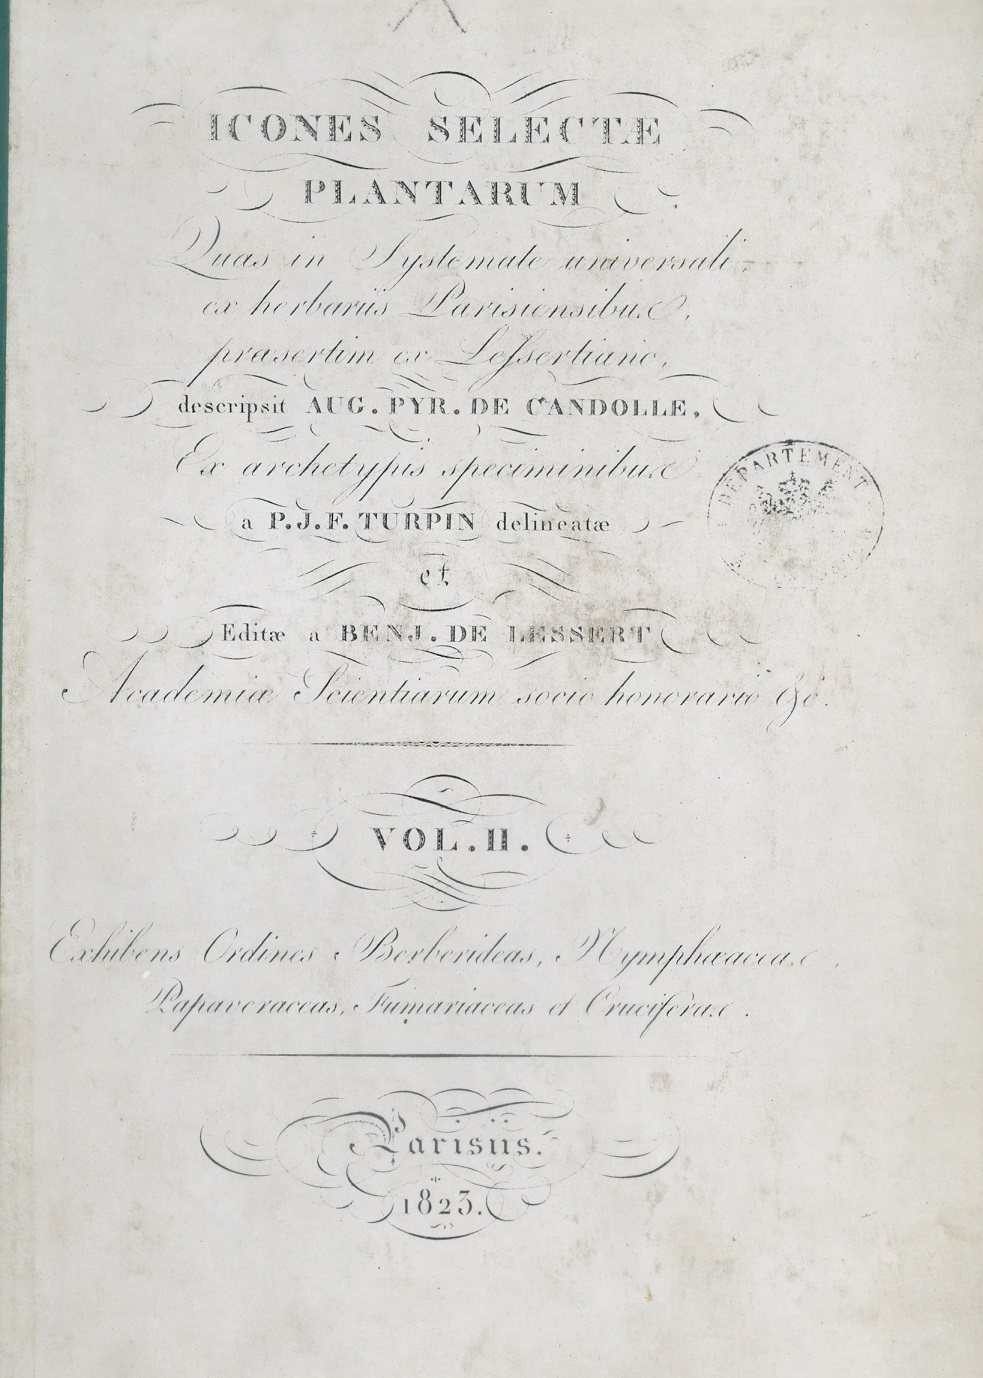 ICONES SELECTÆ
PLANTARUM
Quas in Systemate universali,
ex herbariis Parisiensibus,
præsertim ex Lessertiano,
descripsit AUG. PYR. DE CANDOLLE,
Ex archetypis speciminibus
a P. J. F. TURPIN delineatæ
et
Editæ a BENJ. DE LESSERT
Academiæ Scientiarum socio honorario &c.
VOL. II.
Exhibens Ordines Berberideas, Nymphæaceas,
Papaveraceas, Fumariaceas et Cruciferas.
Parisiis.
1823.
DEPARTEMENT